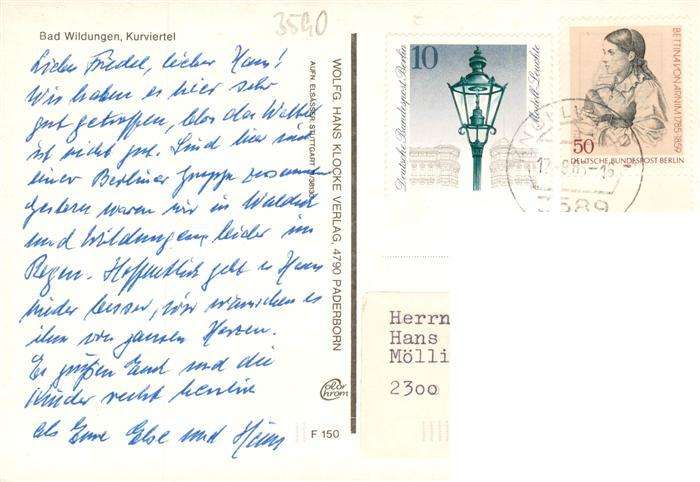 3540
Bad Wildungen, Kurviertel
Lieber Friedel, lieber Hans!
Wir haben es hier sehr
gut getroffen, blos das Wetter
ist nicht gut. Sind hier mit
einer Berliner Gruppe zusammen
Gestern waren wir in Waldeck
und Wildungen leider im
Regen. Hoffentlich geht es Hans
wieder besser, wir wünschen es
ihm von ganzen Herzen.
Es grüßen Euch und die
Kinder recht herzlich
als Eure Else und Heinz
WOLFG. HANS KLOCKE VERLAG, 4790 PADERBORN
AUFN. ELSÄSSER STUTTGART
Color
Chrom
F 150
10
Deutsche Bundespost Berlin
Modell-Leuchte
BETTINA VON ARNIM 1785-1859
50
DEUTSCHE BUNDESPOST BERLIN
3589
Herrn
Hans
Mölli
2300